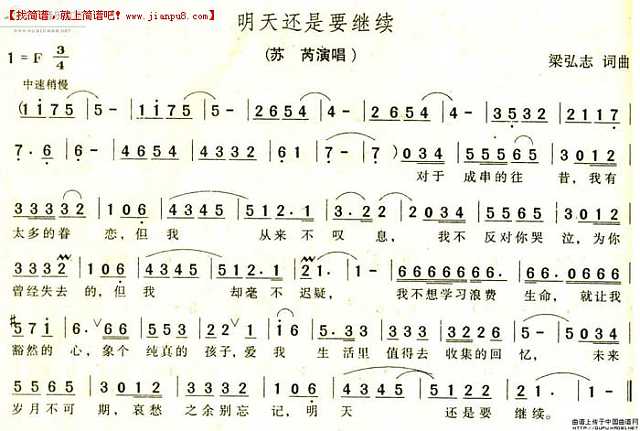 【找简谱,就上简谱吧】www.jianpu8.com
明天还是要继续
(苏 芮演唱)
1=F 3/4
梁弘志 词曲
中速稍慢
(1175 | 5 - | 1175 | 5 - | 2654 | 4 - | 2654 | 4 - | 3532 | 2117 |
7.6 | 6 - | 4654 | 4332 | 6121 | 1 - | 1 - ) | 034 | 55565 | 3012 |
对于 成串的往 昔,我有
33332 | 106 | 4345 | 512.1 | 3.22 | 2034 | 55565 | 3012 |
太多的眷 恋,但我 从来不叹 息, 我不 反对你哭 泣,为你
3332 | 106 | 4345 | 512.1 | 1 - | 1 - | 6666666 | 66.0666 |
曾经失去 的,但我 却毫不 迟疑, 我不想学习浪费 生命,就让我
#571 | 6.66 | 553 | 223 | 216 | 5.33 | 333 | 2232 | 5 - | 5034 |
豁然的 心,象个 纯真的 孩子,爱我 生活里 值得去 收集的回 忆, 未来
5565 | 3012 | 3332 | 106 | 4345 | 5 - | 512 | 1 - | 1 0 |
岁月不可 期,哀愁 之余别忘 记,明 天 还是要 继续。
曲谱上传于中国曲谱网